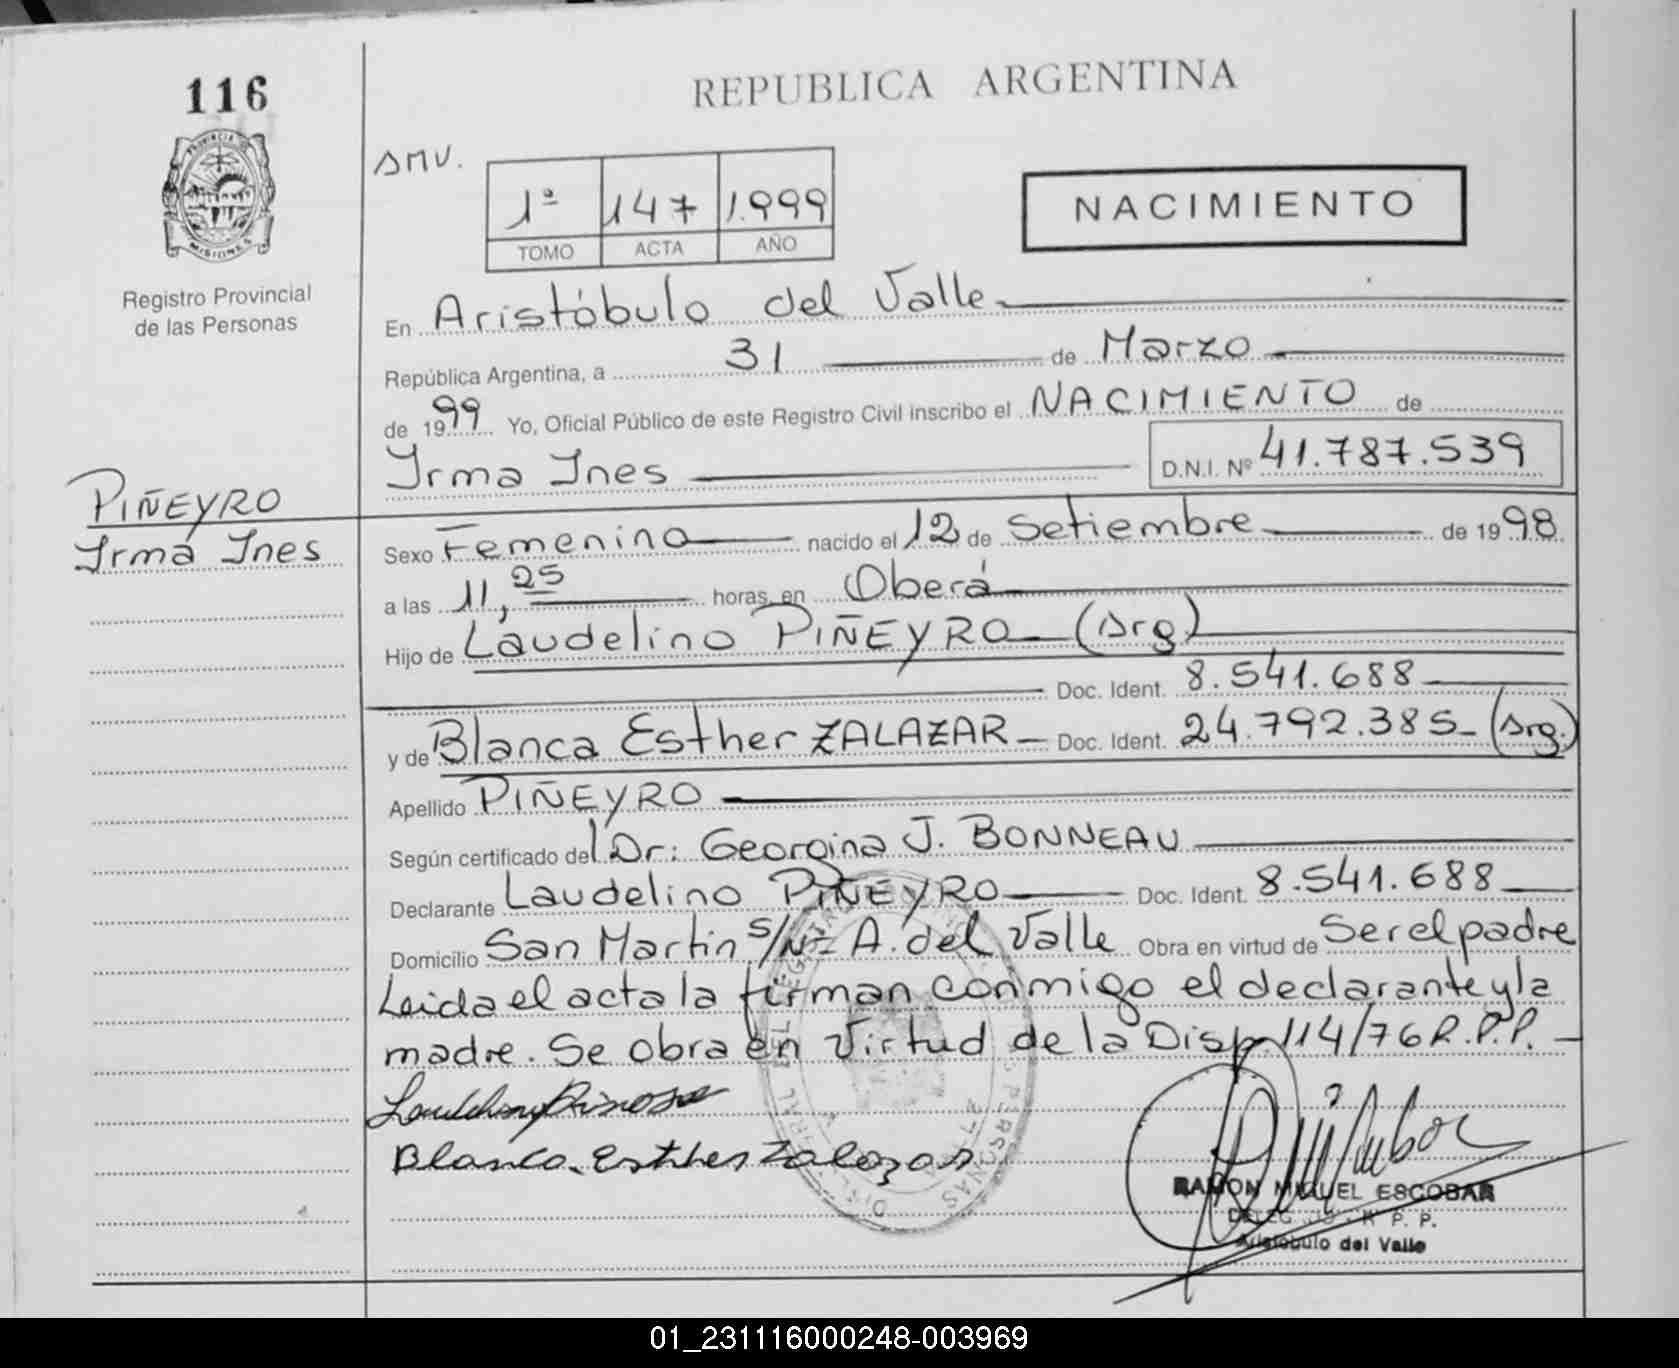 116
REPUBLICA ARGENTINA
PROVINCIA DE
MISIONES
Registro Provincial
de las Personas
SMV.
1ª 147 1.999
TOMO ACTA AÑO
NACIMIENTO
En Aristóbulo del Valle
República Argentina, a 31 de Marzo
de 1999 Yo, Oficial Público de este Registro Civil inscribo el NACIMIENTO de
Yrma Ines D.N.I. Nº 41.787.539
PIÑEYRO
Yrma Ines
Sexo Femenino nacido el 12 de Setiembre de 1998
a las 11,25 horas, en Oberá
Hijo de Laudelino PIÑEYRO (Arg)
Doc. Ident. 8.541.688
y de Blanca Esther ZALAZAR Doc. Ident. 24.792.385 (Arg.)
Apellido PIÑEYRO
Según certificado del Dr: Georgina J. BONNEAU
Declarante Laudelino PIÑEYRO Doc. Ident. 8.541.688
Domicilio San Martin s/Nº A. del Valle Obra en virtud de Ser el padre
Leida el acta la firman conmigo el declarante y la
madre. Se obra en Virtud de la Disp. 114/76 R.P.P.
Blanca Esther Zalazar
RAMON MIGUEL ESCOBAR
R. P. P.
Aristobulo del Valle
01_231116000248-003969